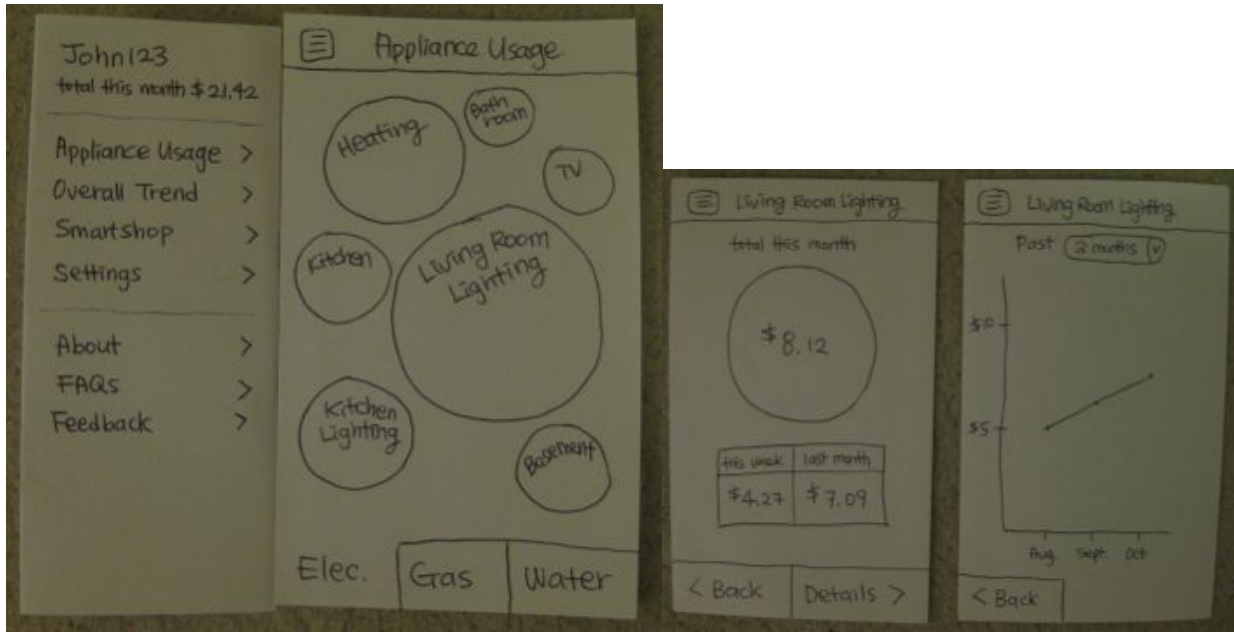 John123
total this month $21.42
Appliance Usage >
Overall Trend >
Smartshop >
Settings >
About >
FAQs >
Feedback >
Appliance Usage
Heating
Bath
room
TV
Kitchen
Living Room
Lighting
Kitchen
Lighting
Basement
Elec. Gas Water
Living Room Lighting
total this month
$8.12
this week last month
$4.27 $7.09
< Back Details >
Living Room Lighting
Past 3 months
$10
$5
Aug Sept. Oct
< Back